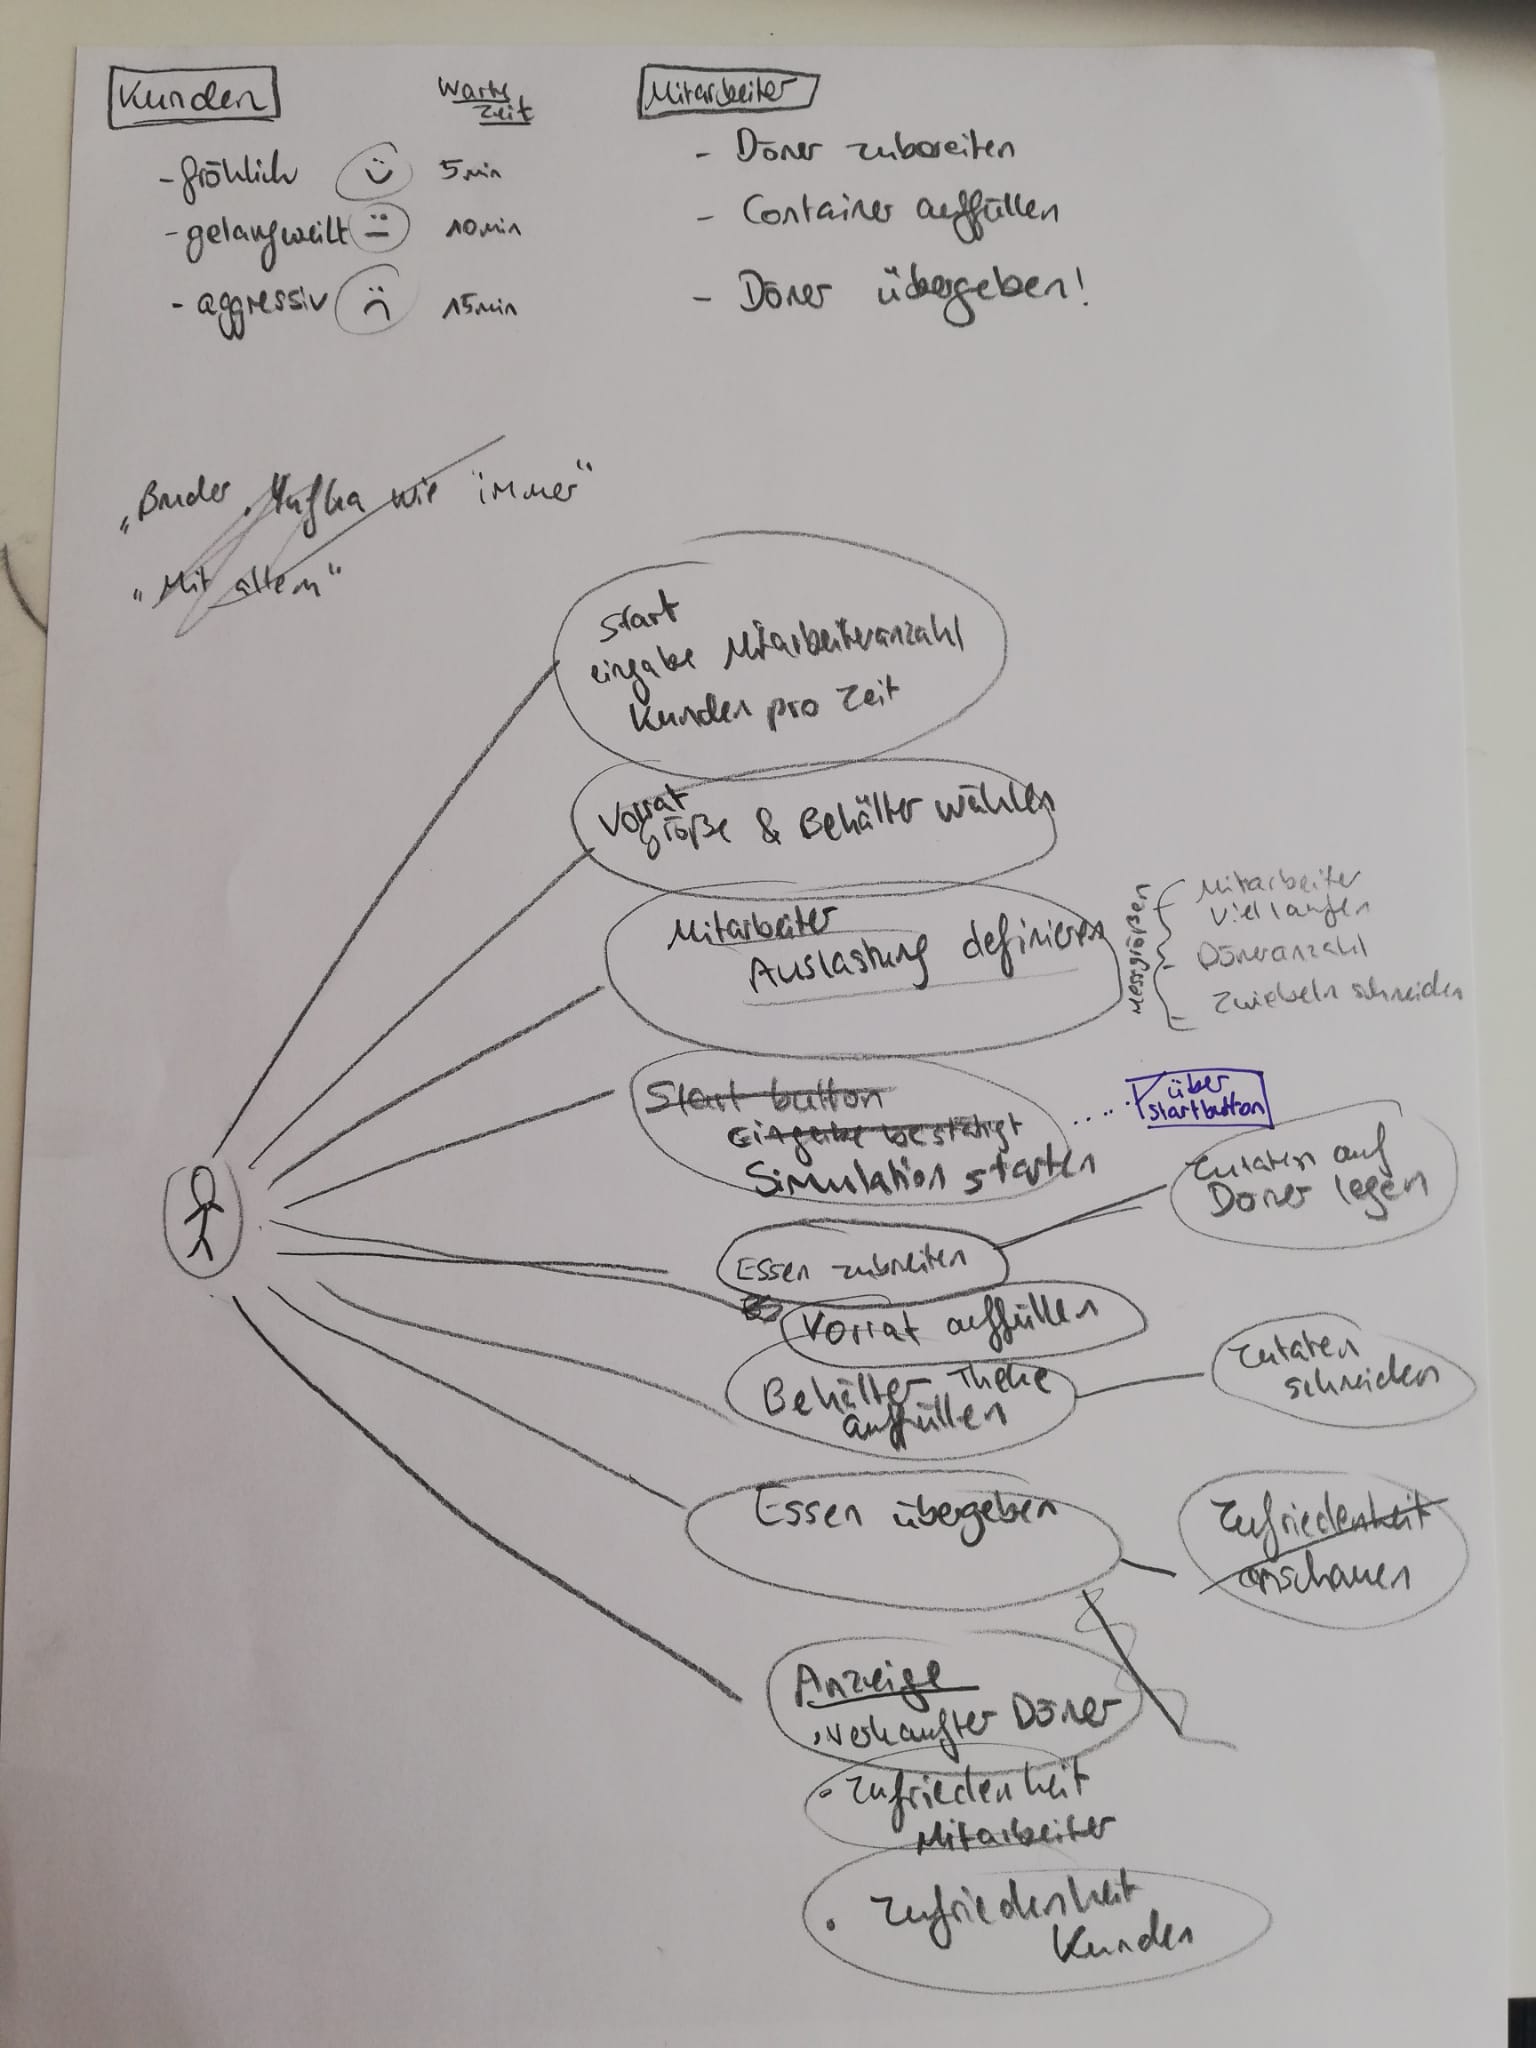 Kunden
Warte
Zeit
- fröhlich 5min
- gelangweilt 10min
- aggressiv 15min
Mitarbeiter
- Döner zubereiten
- Container auffüllen
- Döner übergeben!
„Bruder, Yufka wie immer"
„Mit allem"
Start
eingabe Mitarbeiteranzahl
Kunden pro Zeit
Vorrat
größe & Behälter wählen
Mitarbeiter
Auslastung definieren
Messgrößen
Mitarbeiter
viel laufen
Döneranzahl
Zwiebeln schneiden
Start button
Eingabe bestätigt
Simulation starten
über
startbutton
Zutaten auf
Döner legen
Essen zubreiten
Vorrat auffüllen
Behälter Theke
auffüllen
Zutaten
schneiden
Essen übergeben
Zufriedenheit
anschauen
Anzeige
• verkaufter Döner
• Zufriedenheit
Mitarbeiter
• Zufriedenheit
Kunden